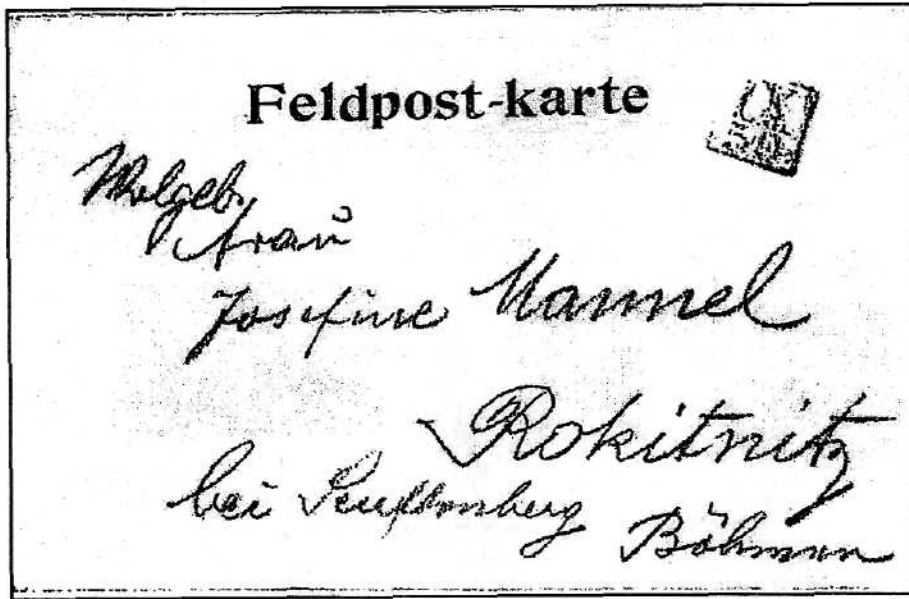 Feldpost-karte
Wolgeb.
Frau
Josefine Mannel
Rokitnitz
bei Senftenberg
Böhmen